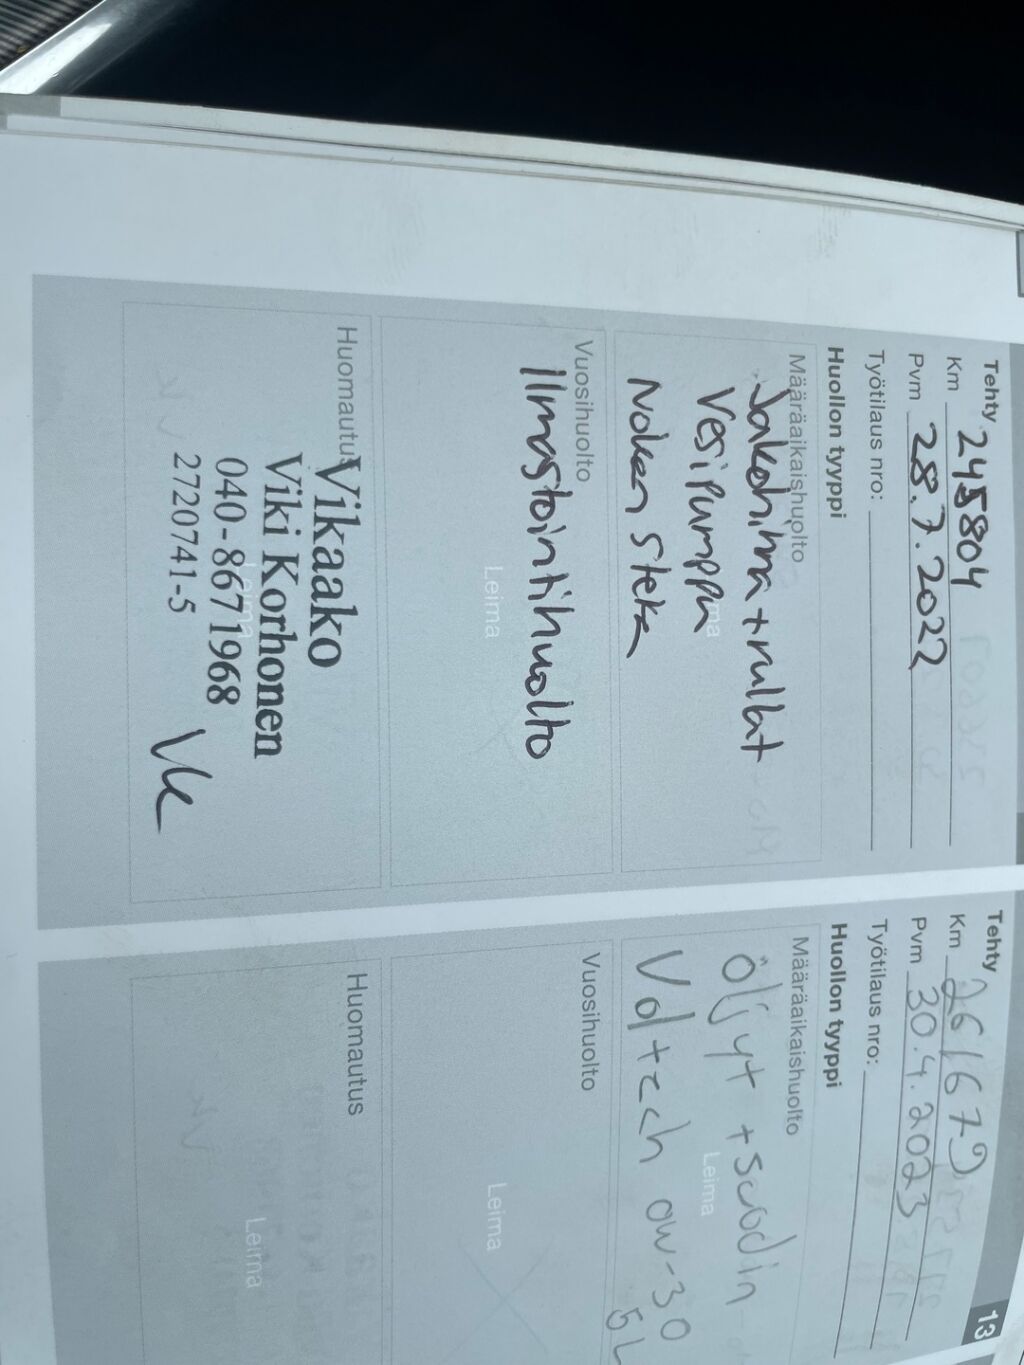 Tehty
Km 245804
Pvm 28.7.2022
Työtilaus nro:
Huollon tyyppi
Määräaikaishuolto
Jakohihna + rullat
Vesipumppu
Nokan steka
Vuosihuolto
Ilmastointihuolto
Leima
Huomautus
Vikaako
Viki Korhonen
040-8671968
2720741-5
Leima
VK
13
Tehty
Km 261679
Pvm 30.4.2023
Työtilaus nro:
Huollon tyyppi
Määräaikaishuolto
Öljyt + suodin
Leima
Voltech 0w-30
5L
Vuosihuolto
Leima
Huomautus
Leima